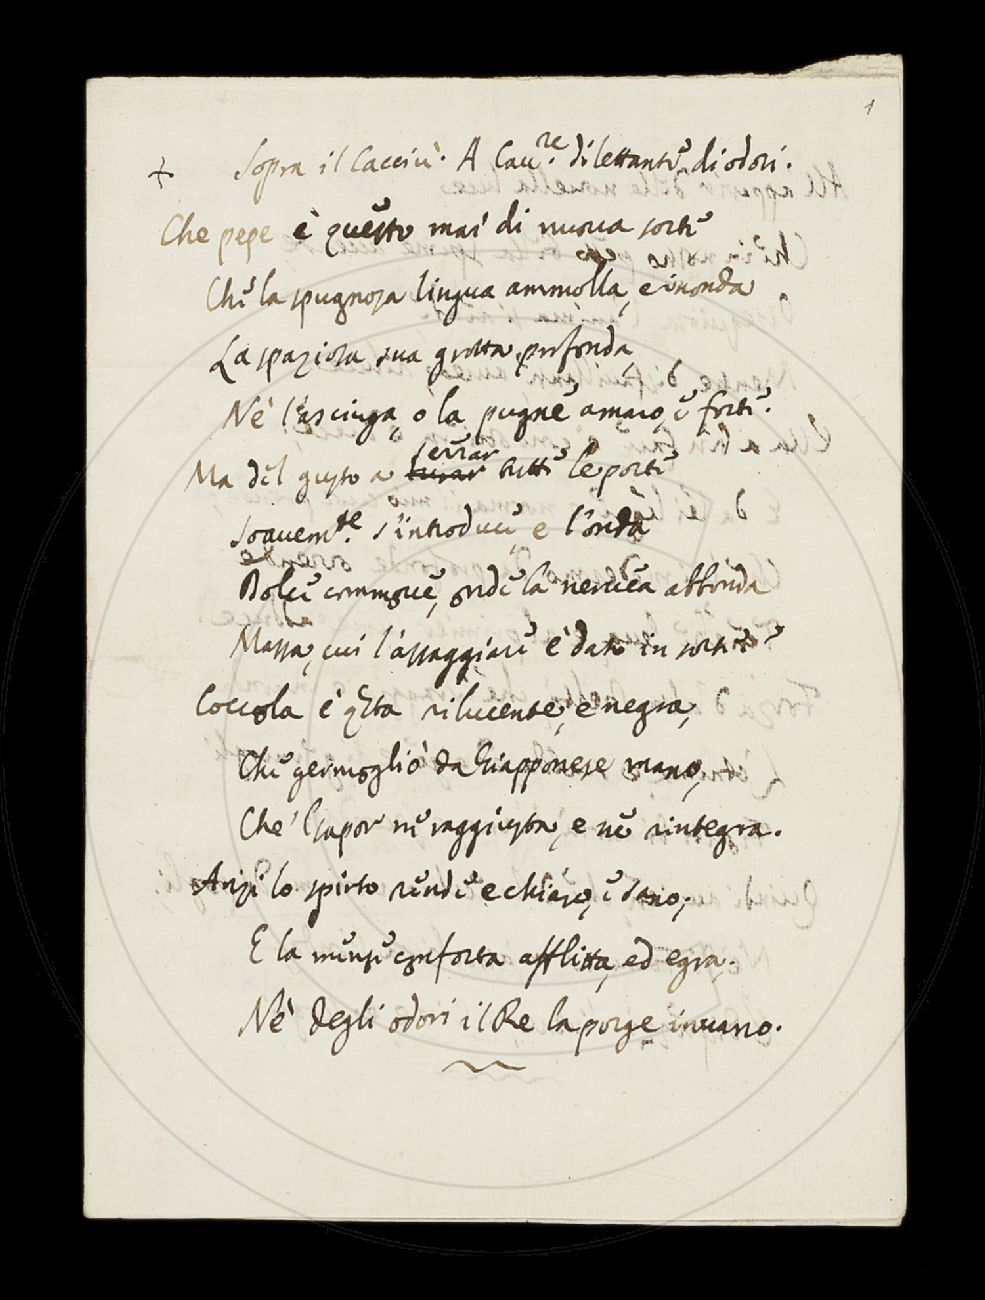 1
+ Sopra il Cacciù. A Cau.re dilettante di odori.
Che pepe è questo mai di nuova sorte
Che la spugnosa lingua ammolla, e inonda
La spaziosa sua grotta profonda,
Nè l'asciuga, o la pugne amaro, e forte.
Ma del gusto a serrar tutte le porte
Soavem.te s'introduce e l'onda
Dolce commove, onde la nervea abbonda
Massa, cui l'assaggiare è dato in sorte
Coccola è q.sta rilucente, e negra,
Che germogliò da Giapponese mano,
Che 'l sapor ne raggiusta, e ne rintegra.
Anzi lo spirto rende e chiaro, e sano;
E la mente conforta afflitta, ed egra.
Nè degli odori il Re la porge invano.